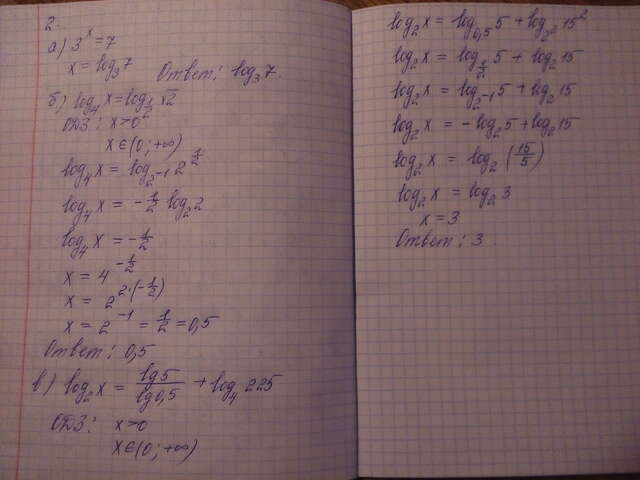 2.
а) 3^x = 7
x = log₃7 Ответ: log₃7
б) log₄x = log_{1/2} √2
ОДЗ: x>0
x∈(0; +∞)
log₄x = log_{2^{-1}} 2^{1/2}
log₄x = -1/2 log₂2
log₄x = -1/2
x = 4^{-1/2}
x = 2^{2·(-1/2)}
x = 2^{-1} = 1/2 = 0,5
Ответ: 0,5
в) log₂x = lg5/lg0,5 + log₄225
ОДЗ: x>0
x∈(0; +∞)
log₂x = log_{0,5}5 + log_{2²}15²
log₂x = log_{1/2}5 + log₂15
log₂x = log_{2^{-1}}5 + log₂15
log₂x = -log₂5 + log₂15
log₂x = log₂(15/5)
log₂x = log₂3
x = 3
Ответ: 3.